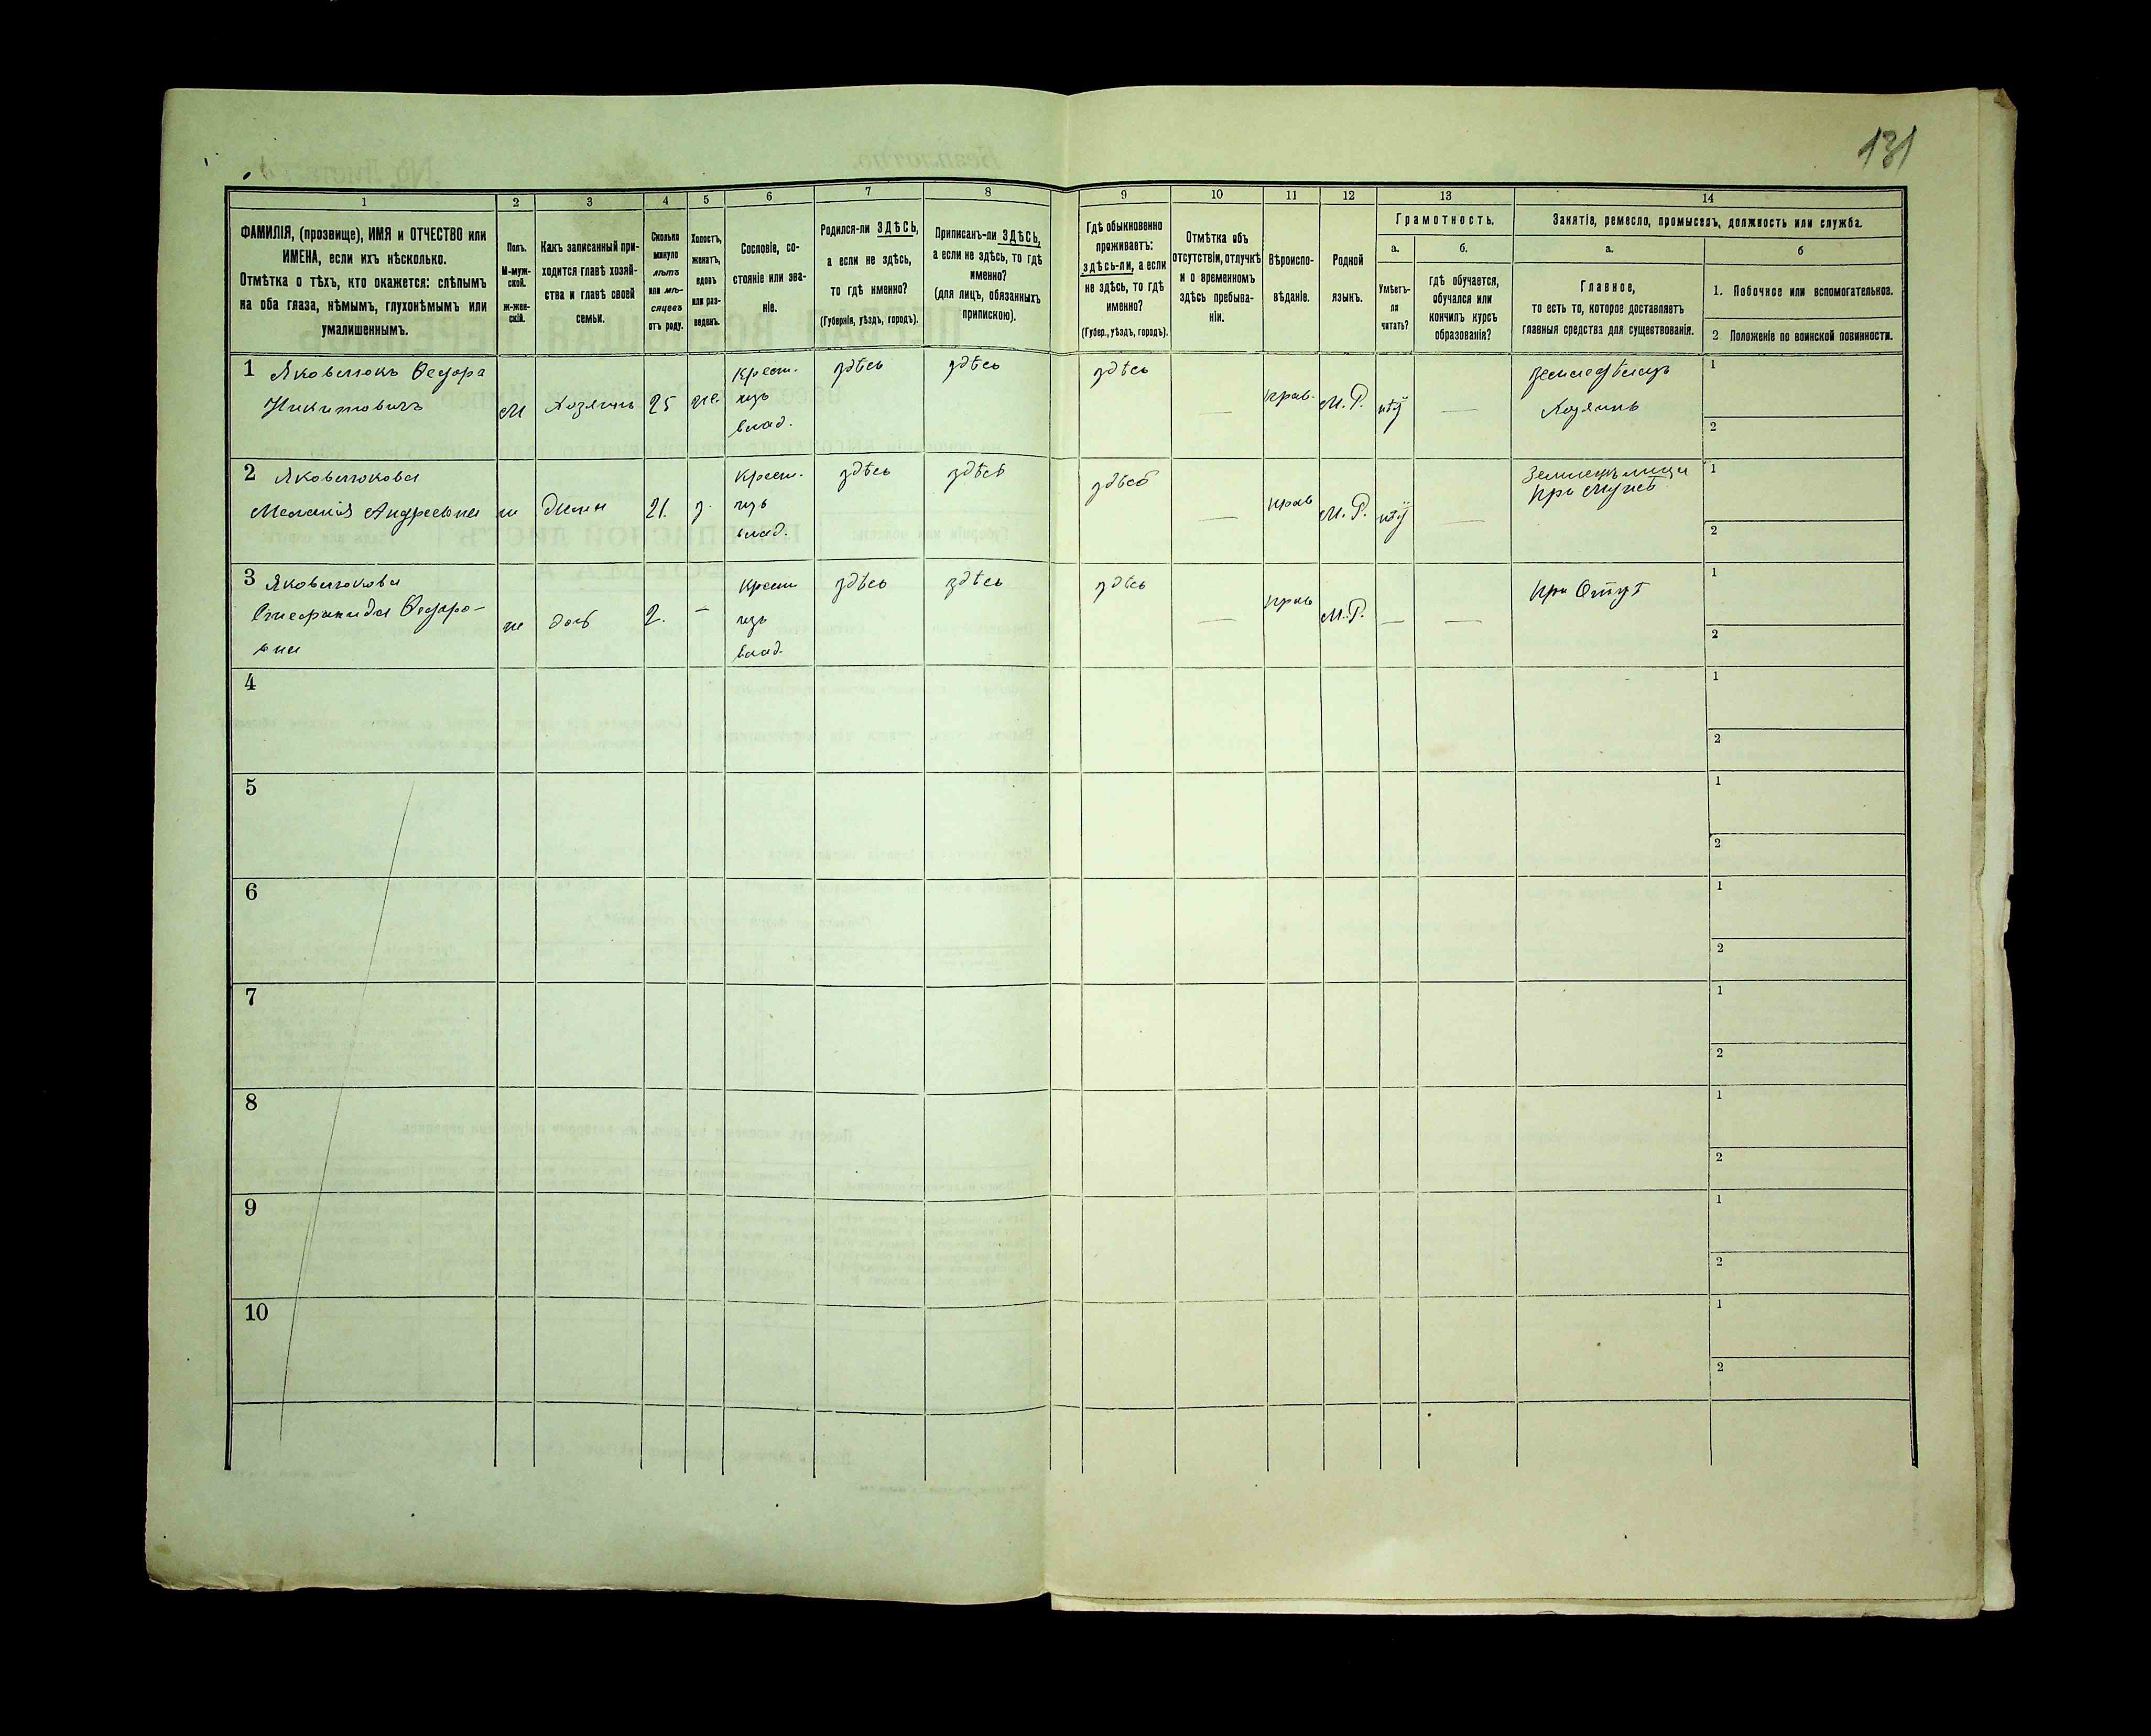 131
1
2
3
4
5
6
7
8
9
10
11
12
13
14
ФАМИЛІЯ, (прозвище), ИМЯ и ОТЧЕСТВО или
ИМЕНА, если ихъ нѣсколько.
Отмѣтка о тѣхъ, кто окажется: слѣпымъ
на оба глаза, нѣмымъ, глухонѣмымъ или
умалишеннымъ.
Полъ.
М-муж-
ской.
ж-жен-
скій.
Какъ записанный при-
ходится главѣ хозяй-
ства и главѣ своей
семьи.
Сколько
минуло
лѣтъ
или мѣ-
сяцевъ
отъ роду.
Холостъ,
женатъ,
вдовъ
или раз-
веденъ.
Сословіе, со-
стояніе или зва-
ніе.
Родился-ли ЗДѢСЬ,
а если не здѣсь,
то гдѣ именно?
(Губернія, уѣздъ, городъ).
Приписанъ-ли ЗДѢСЬ,
а если не здѣсь, то гдѣ
именно?
(для лицъ, обязанныхъ
припискою).
Гдѣ обыкновенно
проживаетъ:
здѣсь-ли, а если
не здѣсь, то гдѣ
именно?
(Губер., уѣздъ, городъ).
Отмѣтка объ
отсутствіи, отлучкѣ
и о временномъ
здѣсь пребыва-
ніи.
Вѣроиспо-
вѣданіе.
Родной
языкъ.
Грамотность.
а.
Умѣетъ-
ли
читать?
б.
гдѣ обучается,
обучался или
кончилъ курсъ
образованія?
Занятіе, ремесло, промыселъ, должность или служба.
а.
Главное,
то есть то, которое доставляетъ
главныя средства для существованія.
б
1. Побочное или вспомогательное.
2 Положеніе по воинской повинности.
1 Яковлюкъ Ѳедоръ
Никитовичъ
м
Хозяинъ
25
же.
Крест.
изъ
влад.
здѣсь
здѣсь
здѣсь
—
прав.
М.Р.
нѣт
—
Земледѣлецъ
Хозяинъ
1
2
2 Яковлюкова
Меланія Андреевна
ж
жена
21.
з.
Крест.
изъ
влад.
здѣсь
здѣсь
здѣсь
—
прав
М.Р.
нѣт
—
при Мужѣ
1
2
3 Яковлюкова
Стефанида Ѳедоро-
вна
ж
дочь
2.
—
Крест
изъ
влад.
здѣсь
здѣсь
здѣсь
—
прав
М.Р.
—
—
при Отцѣ
1
2
4
1
2
5
1
2
6
1
2
7
1
2
8
1
2
9
1
2
10
1
2